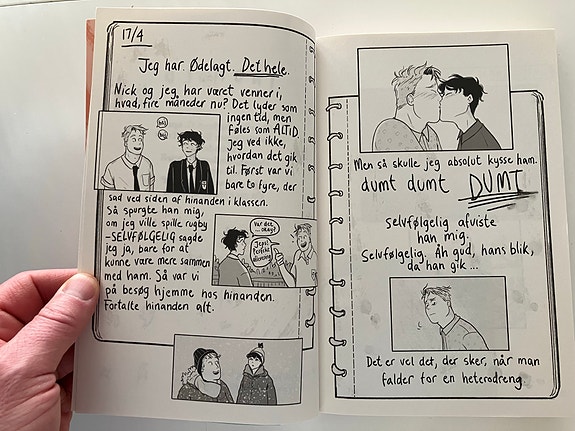 17/4
Jeg har Ødelagt. Det hele.
Nick og jeg har været venner i,
hvad, fire måneder nu? Det lyder som
ingen tid, men
føles som ALTID.
Jeg ved ikke,
hvordan det gik
til. Først var vi
bare to fyre, der
sad ved siden af hinanden i klassen.
Så spurgte han mig,
om jeg ville spille rugby
-SELVFØLGELIG sagde
jeg ja, bare for at
kunne være mere sammen
med ham. Så var vi
på besøg hjemme hos hinanden.
Fortalte hinanden alt.
Var det
... okay?
Jeps!
Perfekt
Men så skulle jeg absolut kysse ham.
dumt dumt DUMT
Selvfølgelig afviste
han mig.
Selvfølgelig. Åh gud, hans blik,
da han gik ...
Det er vel det, der sker, når man
falder for en heterodreng.